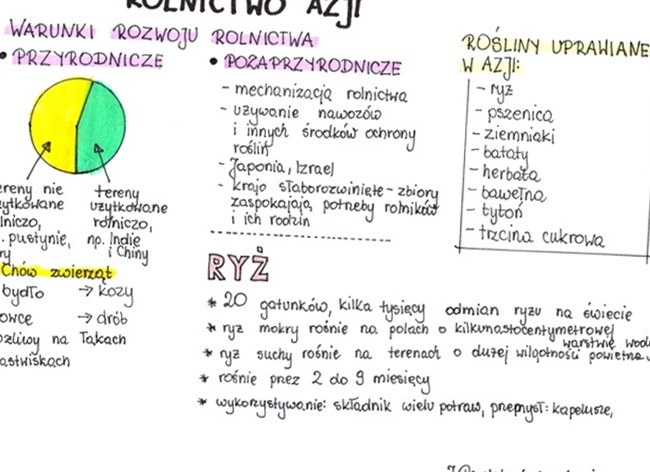 ROLNICTWO AZJI
WARUNKI ROZWOJU ROLNICTWA
• PRZYRODNICZE
tereny
użytkowane
rolniczo,
np. Indie
i Chiny
ereny nie
żytkowane
lniczo,
. pustynie,
ry
Chów zwierząt
bydło → kozy
owce → drób
ożliwy na łąkach
astwiskach
• POZAPRZYRODNICZE
- mechanizacja rolnictwa
- używanie nawozów
i innych środków ochrony
roślin
- Japonia, Izrael
- kraje słaborozwinięte - zbiory
zaspokajają potrzeby rolników
i ich rodzin
ROŚLINY UPRAWIANE
W AZJI:
- ryż
- pszenica
- ziemniaki
- bataty
- herbata
- bawełna
- tytoń
- trzcina cukrowa
RYŻ
* 20 gatunków, kilka tysięcy odmian ryżu na świecie
* ryż mokry rośnie na polach o kilkunastocentymetrowej
warstwie wod
* ryż suchy rośnie na terenach o dużej wilgotności powietrza
* rośnie przez 2 do 9 miesięcy
* wykorzystywanie: składnik wielu potraw, przemysł: kapelusze,